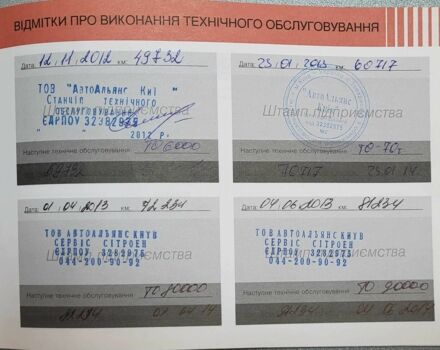 ВІДМІТКИ ПРО ВИКОНАННЯ ТЕХНІЧНОГО ОБСЛУГОВУВАННЯ
Дата: 12.11.2012 км: 49732
ТОВ "АвтоАльянс Киї "
Станція технічного
обслуговування
ЄДРПОУ 32382975
2012 р.
Штамп підприємства
Наступне технічне обслуговування:
Дата: 23.01.2013 км: 60717
"АвтоАльянс
Штамп підприємства
Наступне технічне обслуговування: ТО-70т
70717 23.01.14
Дата: 01.04.2013 км: 72234
ТОВ АВТОАЛЬЯНС КИУВ
СЕРВІС СІТРОЕН
ЄДРПОУ 3282975
044-200-90-92
Штамп підприємства
Наступне технічне обслуговування: ТО 80000
01 04 14
Дата: 04.06.2013 км: 81234
ТОВ АВТОАЛЬЯНС КИУВ
СЕРВІС СІТРОЕН
ЄДРПОУ 3282975
044-200-90-92
Штамп підприємства
Наступне технічне обслуговування: ТО 90000
91234 04 06 2014